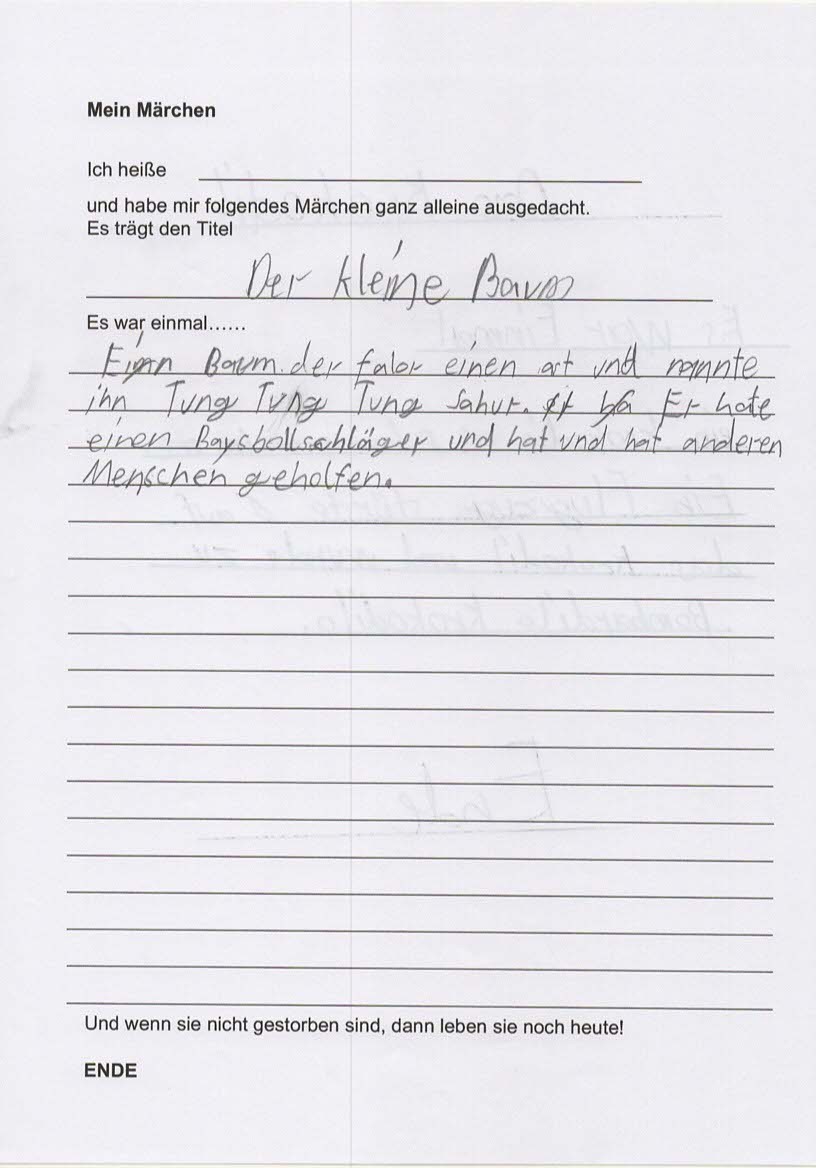 Mein Märchen
Ich heiße
und habe mir folgendes Märchen ganz alleine ausgedacht.
Es trägt den Titel
Der kleine Baum
Es war einmal......
Einen Baum. der falor einen art und nannte
ihn Tung Tung Tung Sahur. Er hate
einen Baysbollschläger und hat und hat anderen
Menschen geholfen.
Und wenn sie nicht gestorben sind, dann leben sie noch heute!
ENDE